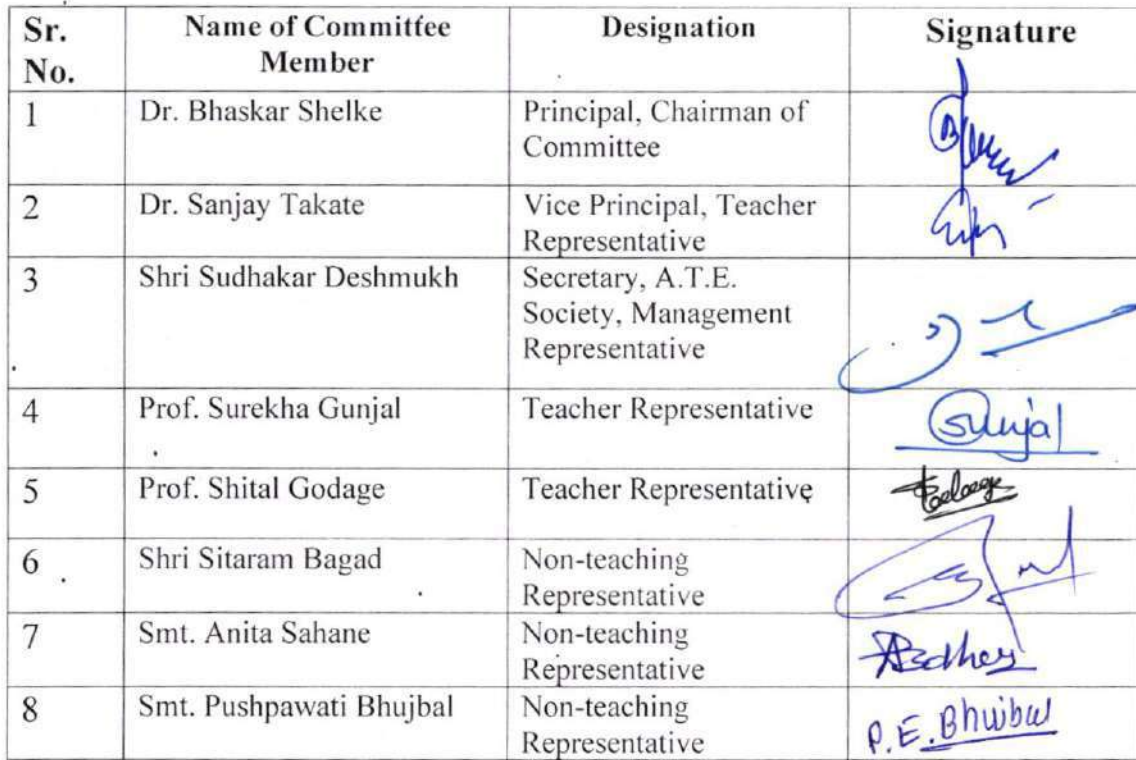 Sr. No.
Name of Committee Member
Designation
Signature
1
Dr. Bhaskar Shelke
Principal, Chairman of
Committee
2
Dr. Sanjay Takate
Vice Principal, Teacher
Representative
3
Shri Sudhakar Deshmukh
Secretary, A.T.E.
Society, Management
Representative
4
Prof. Surekha Gunjal
Teacher Representative
Sunjal
5
Prof. Shital Godage
Teacher Representative
6
Shri Sitaram Bagad
Non-teaching
Representative
7
Smt. Anita Sahane
Non-teaching
Representative
8
Smt. Pushpawati Bhujbal
Non-teaching
Representative
P.E.Bhujbal